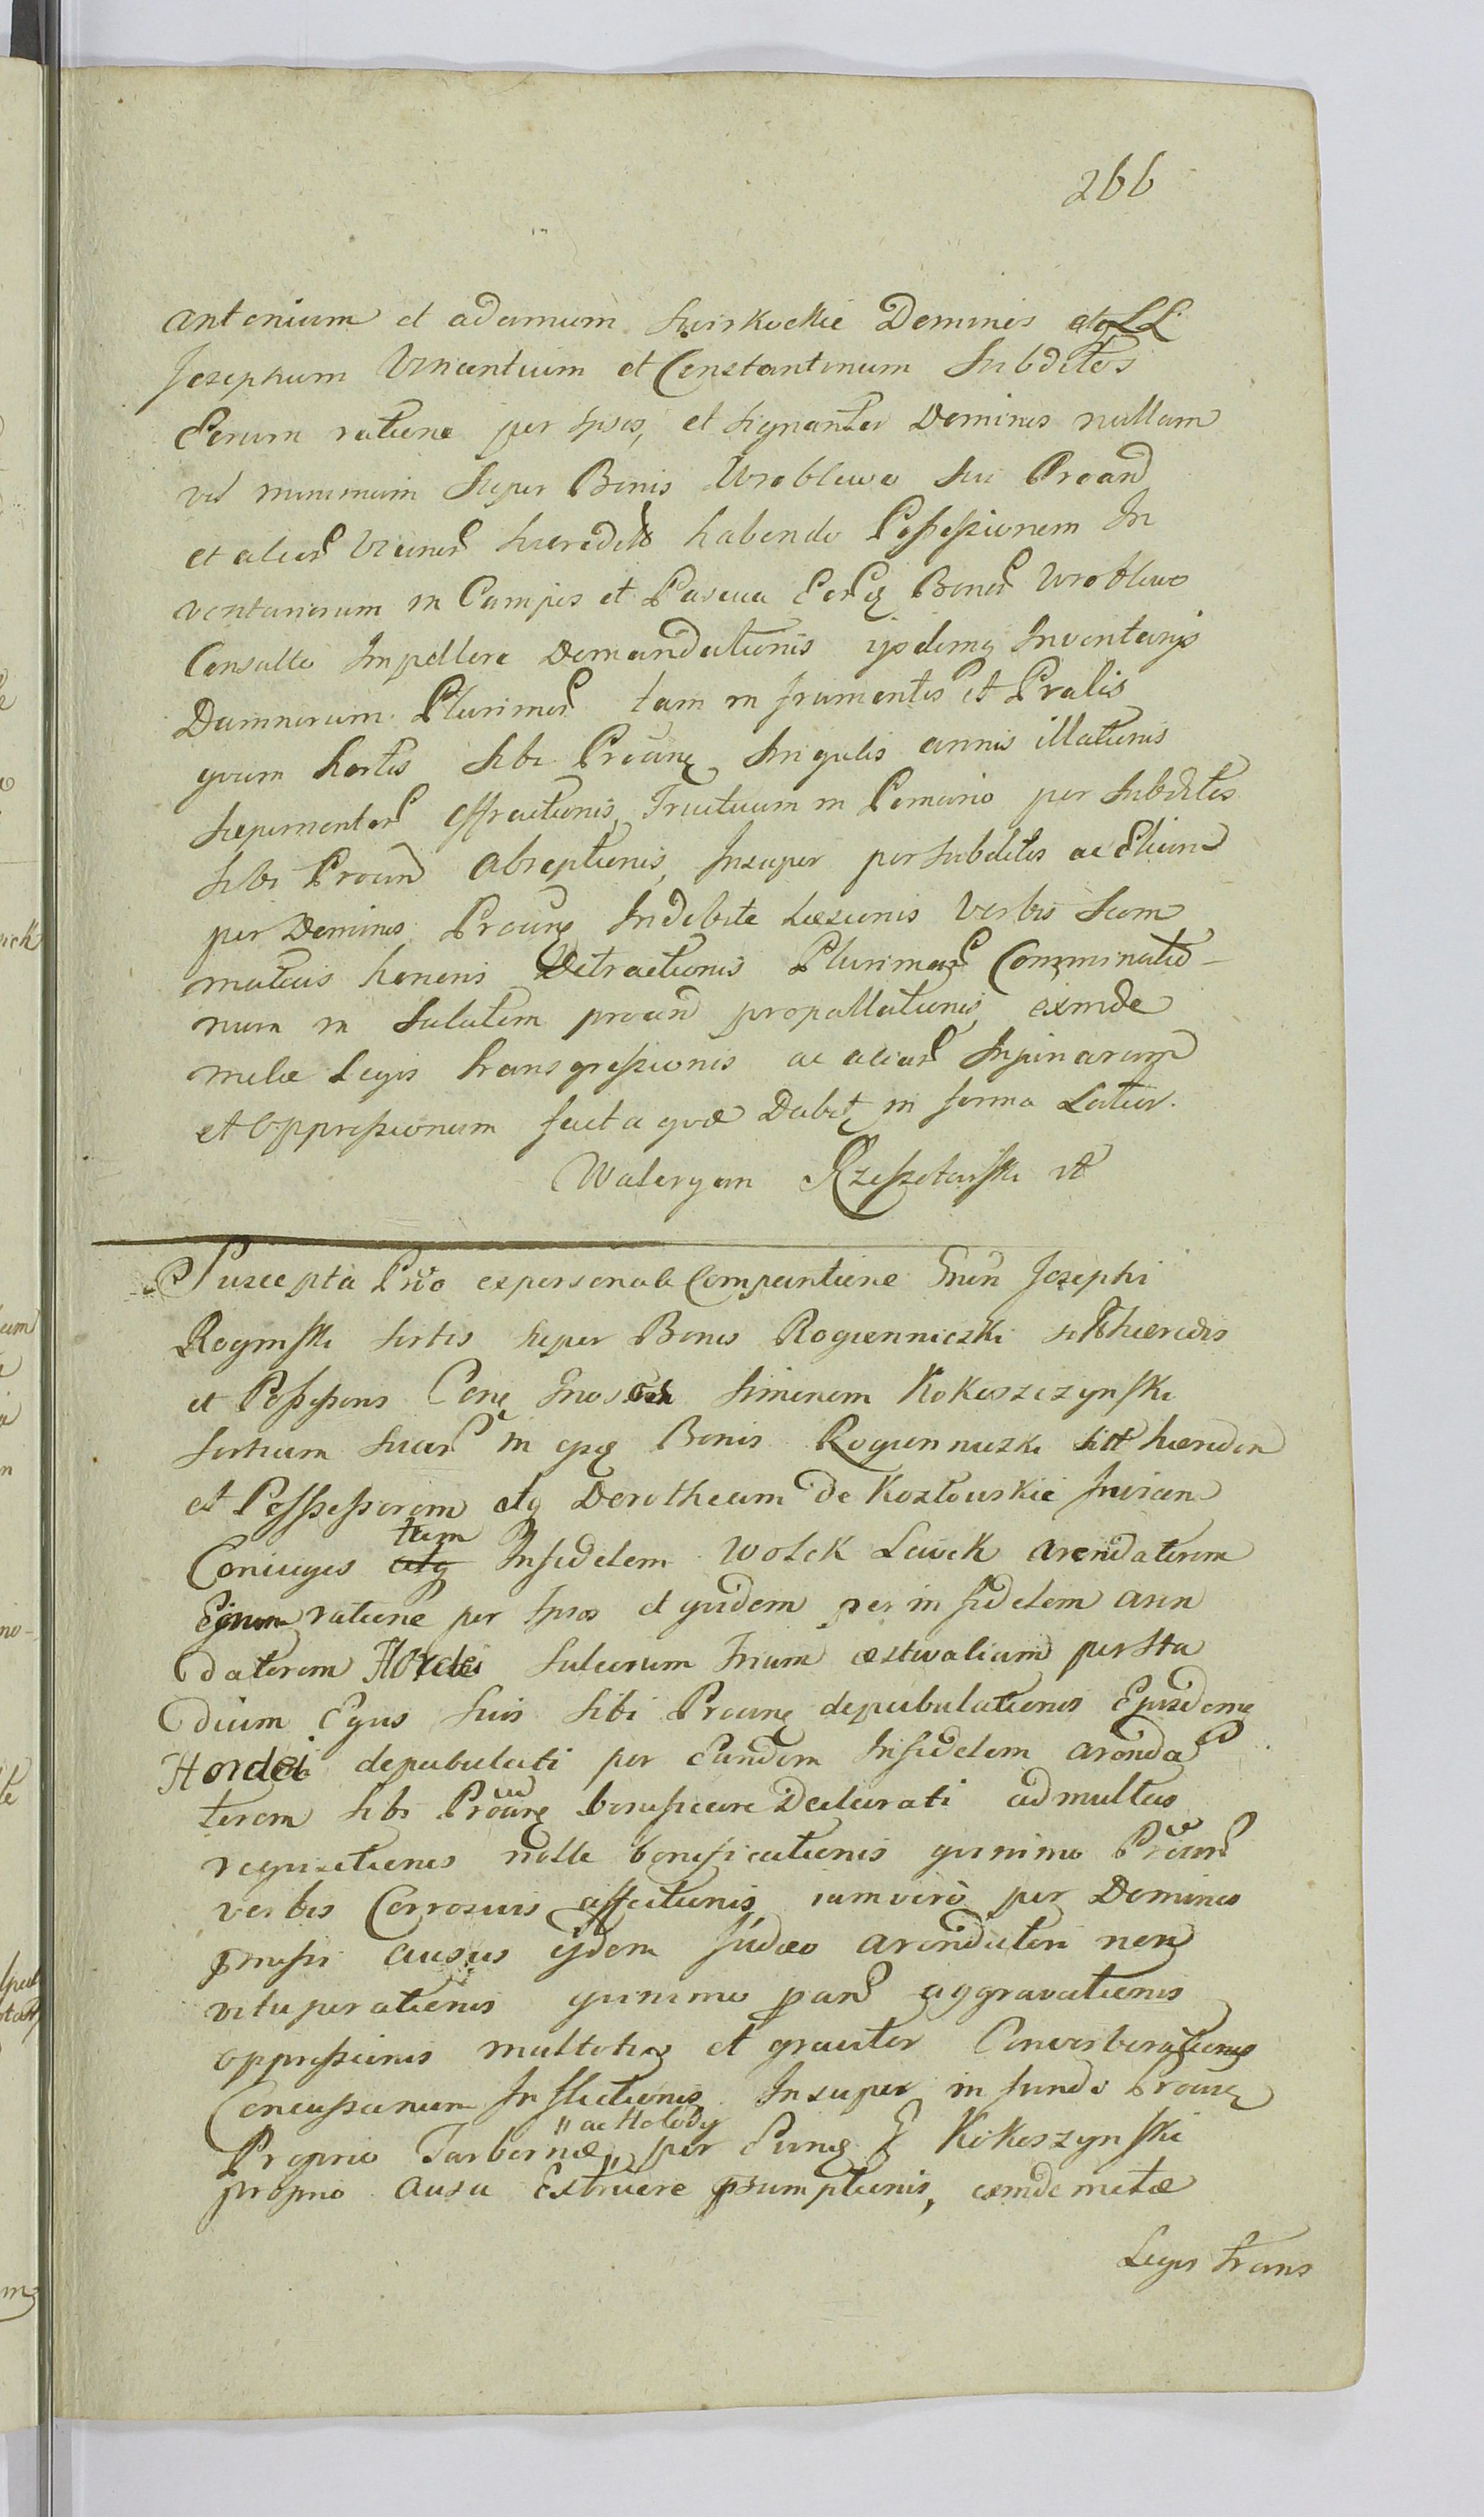 266
Antonium et Adamum Swirkockie Dominos atq LL
Josephum Vincentium et Constantinum Subditos
Eorum ratione per Ipsos, et signanter Dominos nullam
vel minimam super Bonis Wroblewo sui Proand
et alior Vicinor haeredit habendo Possessionem In
ventariorum in Campos et Pascua Eorq Bonor Wroblewo
Consulto Impellere Demandationis ijsdemq Inventarijs
Damnorum Plurimor tam in frumentis et Pratis
quam hortis sibi Proanq singulis annis illationis
sepimentor effractionis, Fructuum in Pomario per subditos
sibi Proand Abreptionis, Insuper per subditos ac Etiam
per Dominos Proanq Indebite Laesionis Verbis Sum
matius honoris Detractionis Plurimar Comminatio-
num in Salutem proand propallationis, exinde
metae Legis transgressionis ac aliar Injuriarum
et Oppressionum facta quae Dabit in forma Latior.
Waleryan Rzeszotarski
Suscepta Pro ex personali Comparitione Gnri Josephi
Roginski sortis super Bonis Rogienniczki haeredis
et Possessoris Conq Gnosos Simonem Kokoszczynski
sortium suar in ijsq Bonis Rogienniczki haeredem
et Possessorem atq Dorotheam de Kozłowskie
Coniuges atq tum Infidelem Wolek Lewek Arendatorem
Eorum ratione per Ipsos et quidem per infidelem Aren
datorem Hordei Sulcorum Trium aestivalium per Sta
dium Equs Suis sibi Proanq depabulationis Ejusdemq
Hordei depabulati per Eundem Infidelem Arenda
torem sibi Proanq bonificare Declarati ad multas
requisitiones nolle bonificationis quinimo Proand
verbis Corrosivis affectionis, iamvero per Dominos
pmissi ausus ijdem Judaeo Arendatori non
vituperationis quinimo pand aggravationis
oppressionis multotiq et graviter Converberationis
Concussionum Inflictionis, Insuper in fundo Proanq
Proprio Tarbernae, " ac Holody per Eunq G Kokoszynski
proprio Ausu Extruere psumptionis, exinde metae
Legis trans